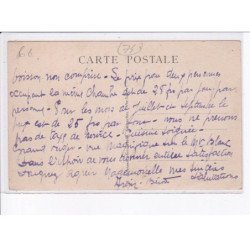 CARTE POSTALE
boisson non comprise - Le prix pour deux personnes
occupant la même chambre est de 25 frs par jour par
personne - Pour les mois de Juillet septembre le
prix est de 25 frs par jour - nous ne prenons
pas de taxe de service - Cuisine soignée -
vue magnifique sur le Mt Blanc
Dans l'espoir de vous donner entière satisfaction
agréer Mademoiselle mes sincères
salutations